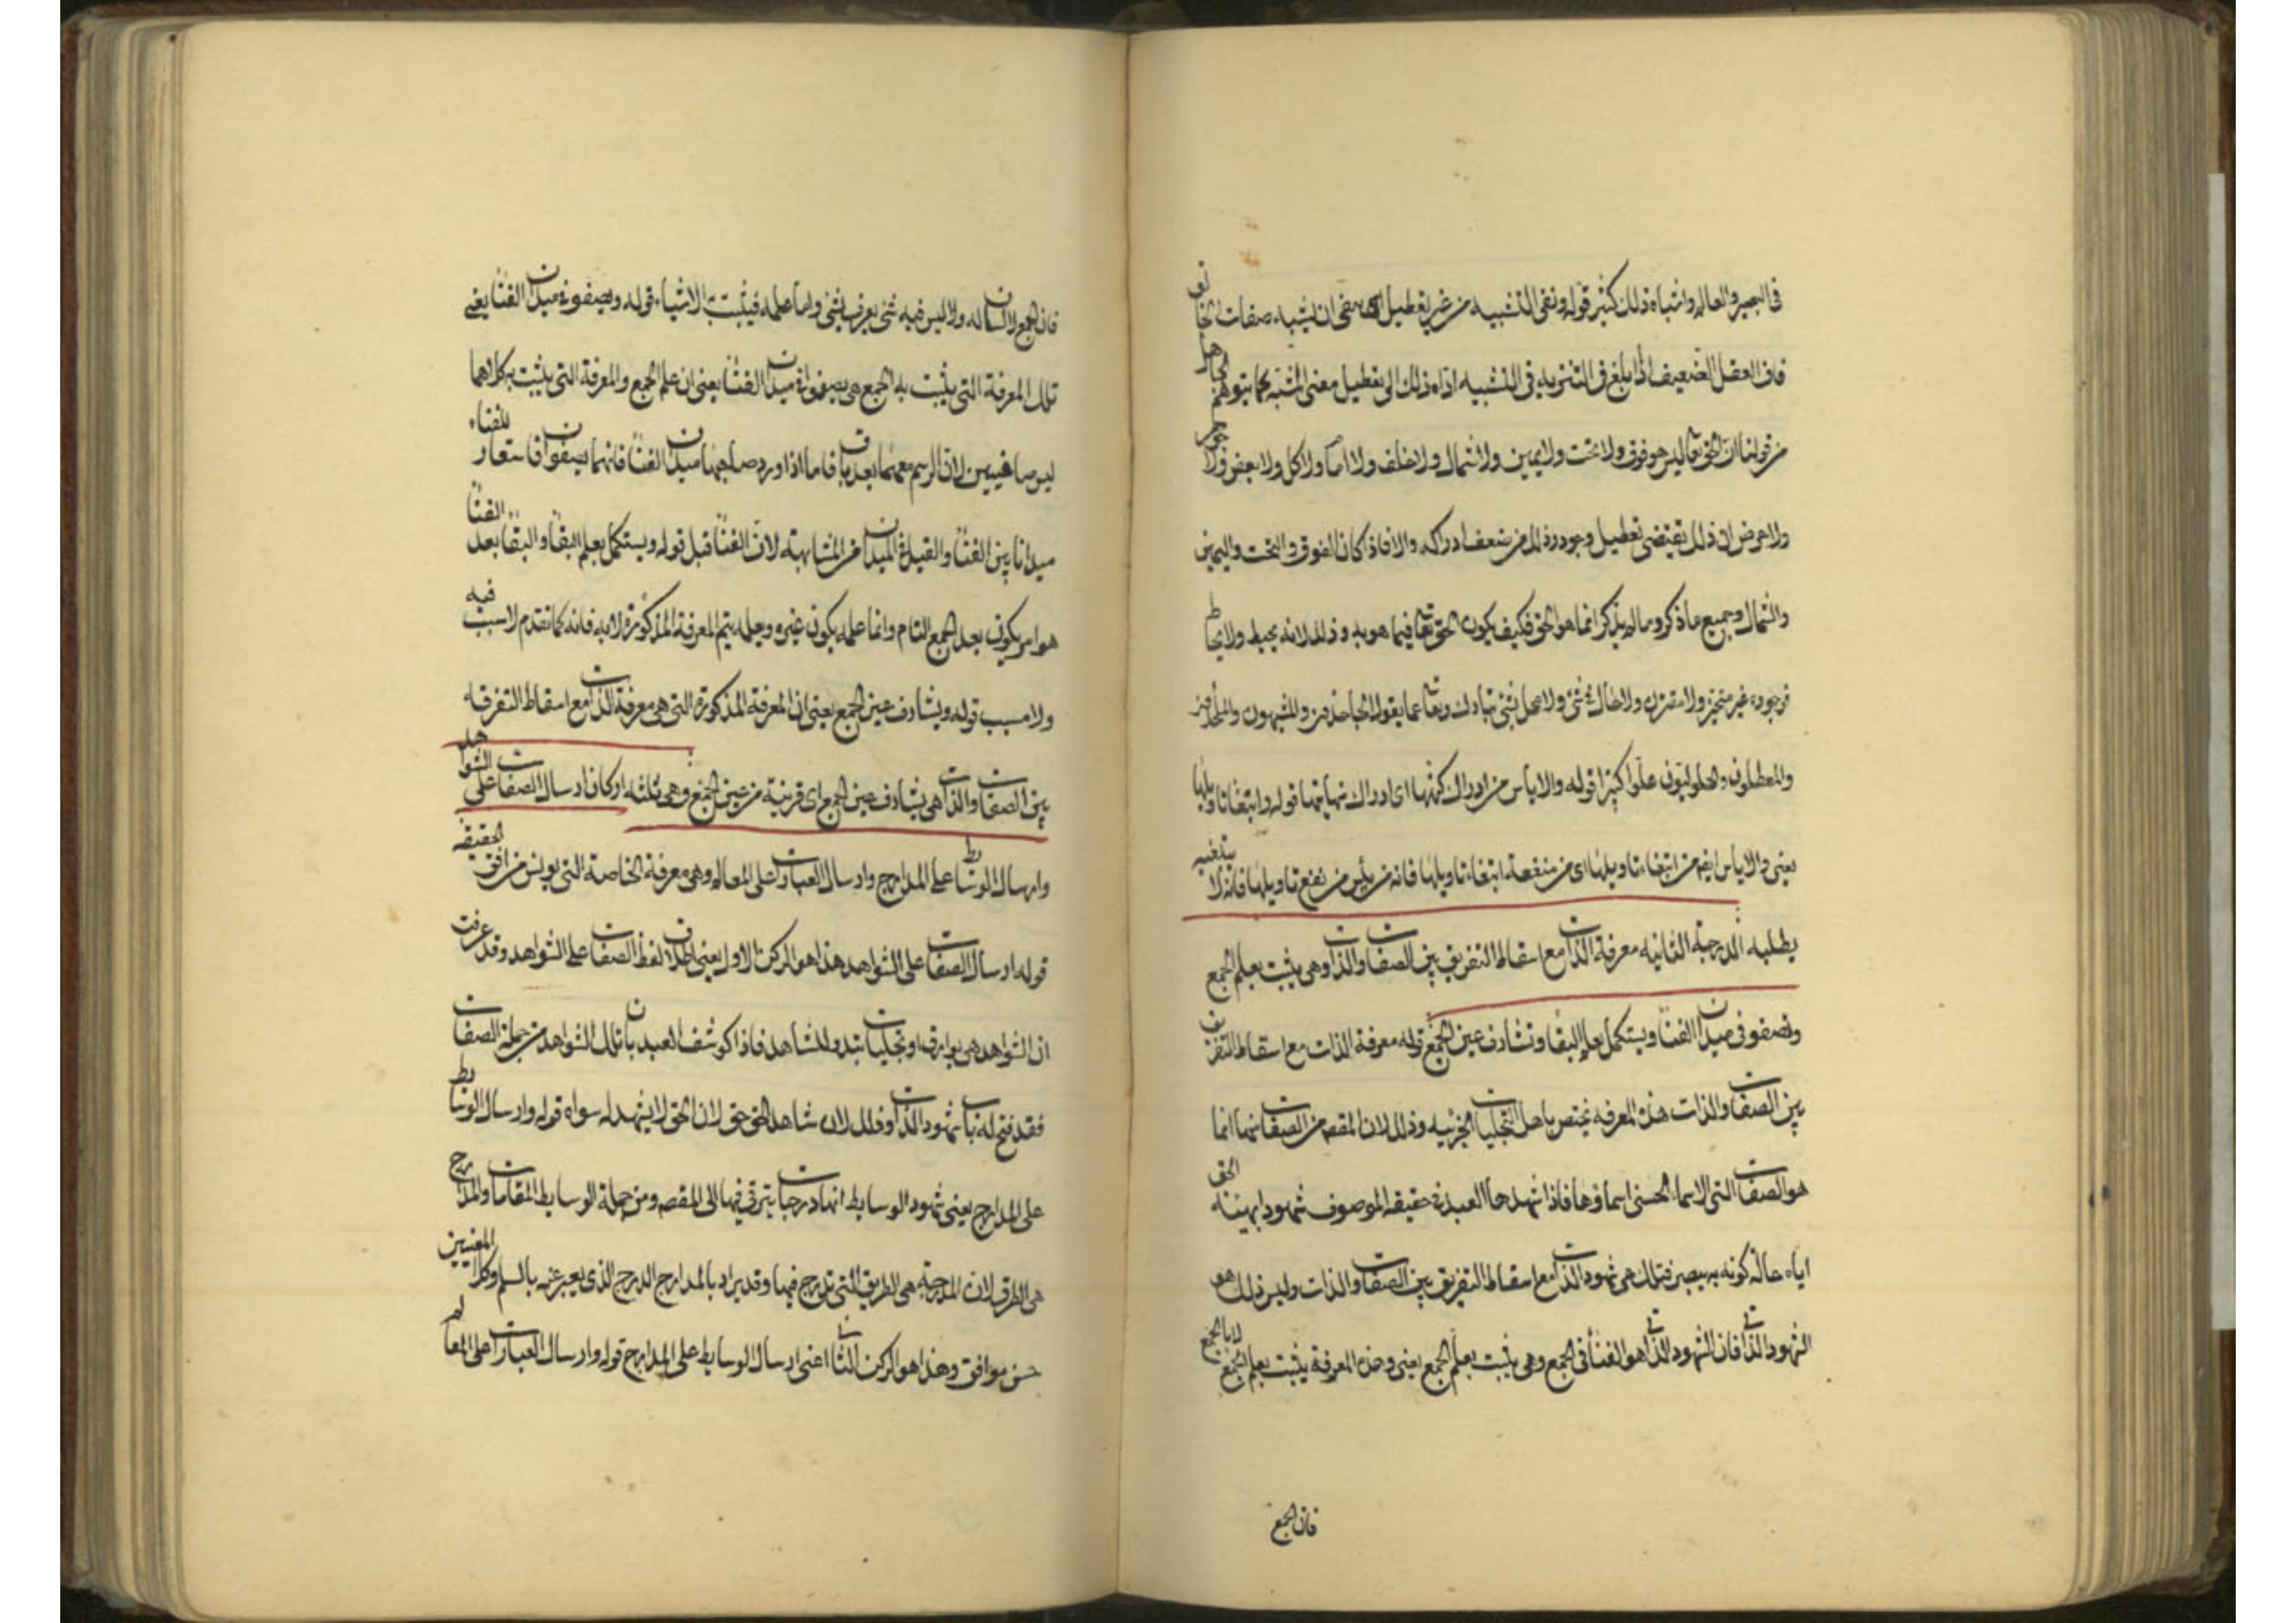 في البصير والعالم واشباه ذلك كثير قوله ونفى التشبيه من غير تعطيل اى ينفى ان يشبه صفات الخالق
فان العقل الضعيف اذا بلغ في التنزيه في التشبيه اداه ذلك الى تعطيل معنى المشبه كما يتوهم الجاهل
من قولنا ان الحق تعالى ليس هو فوق ولا تحت ولا يمين ولا شمال ولا خلف ولا امام ولا كل ولا بعض ولا جوهر
ولا عرض ان ذلك يقتضى تعطيل وجوده وذلك من ضعف ادراكه والا فاذا كان الفوق والتحت واليمين
والشمال وجميع ما ذكر وما لم يذكر انما هو الحق فكيف يكون الحق تعالى فيما هو به وذلك لانه يحيط ولا يحاط
فوجوده غير متحيز ولا مقترن ولا حال في شئ ولا محل لشئ تبارك وتعالى عما يقول الجاحدون والمشبهون والملحدون
والمعطلون والحلوليون علوا كبيرا قوله والاياس من ادراك كنهها اى ادراك نهايتها قوله وابتغاء تاويلها
يعنى والاياس ايضا من ابتغاء تاويلها اى من منفعة ابتغاء تاويلها فانه من يئس من نفع تاويلها فانه لا يبتغيه
يطلبه الدرجة الثانيه معرفة الذات مع اسقاط التفريق بين الصفات والذات وهى يثبت بعلم الجمع
وتصفو في ميدان الفناء ويستكمل بعلم البقاء وتشارف عين الجمع قوله معرفة الذات مع اسقاط التفريق
بين الصفات والذات هذه المعرفه تختص باهل التجليات الجزئيه وذلك لان المقصود من الصفات انما
هو الصفات التى الاسماء الحسنى اسماؤها فاذا شهدها العبد في حقيقة الموصوف شهودا بهيئته الحق
اياه حالة كونه به يبصر فتلك هى شهود الذات مع اسقاط التفريق بين الصفات والذات وليس ذلك هو
الشهود الذاتى فان الشهود الذاتى هو الفناء في الجمع وهى يثبت بعلم الجمع يعنى وهذه المعرفة يثبت بعلم الجمع لا بالجمع
فان الجمع
فان الجمع لا لسان له ولا ليس فيه شئ يعرف بشئ واما علمه فيثبت الاشياء قوله ويصفو في ميدان الفناء يعنى
تلك المعرفة التى يثبت به الجمع هى يصفو في ميدان الفناء يعنى ان علم الجمع والمعرفة التى يثبت به كلاهما
ليس صافيين لان الرسم معهما بعد باق فاما اذا ورد صاحبهما ميدان الفناء فانهما يصفوان فاستعار للفناء
ميدانا بين الفناء والقيلة الميدان من المشابهة لان الفناء قبل قوله ويستكمل بعلم البقاء والبقاء بعد الفناء
هو امر يكون بعد الجمع التام وانما علمه يكون غيره وبعلمه يتم المعرفة المذكورة لا به فانه كما تقدم لا سبب فيه
ولا مسبب قوله ويشارف عين الجمع يعنى ان المعرفة المذكورة التى هى معرفة الذات مع اسقاط التفرقه
بين الصفات والذات هى يشارف عين الجمع اى قريبة من عين الجمع وهى ثلثه اركان ارسال الصفات على الشواهد
وارسال الوسائط على المدارج وارسال العبارات على المعالم وهى معرفة الخاصة التى يونس من افق الحقيقه
قوله ارسال الصفات على الشواهد هذا هو الركن الاول يعنى اطلاق لفظ الصفات على الشواهد وقد عرفت
ان الشواهد هى بوارق او تجليات تبدو للشاهد فاذا كوشف العبد بان تلك الشواهد من جملة الصفات
فقد فتح له باب شهود الذات وذلك لان شاهد الحق حق لان الحق لا يشهد له سواه قوله وارسال الوسائط
على المدارج يعنى شهود الوسايط انها درجات يترقى فيها الى المقصد ومن جملة الوسايط المقامات والمدارج
هى الطرق لان المدرجة هى الطريق التى تدرج فيها وقد يراد بالمدارج الدرج الذى يعبر عنه بالسلم وكلا المعنيين
حسن موافق وهذا هو الركن الثانى اعنى ارسال الوسايط على المدارج قوله وارسال العبارات على المعالم